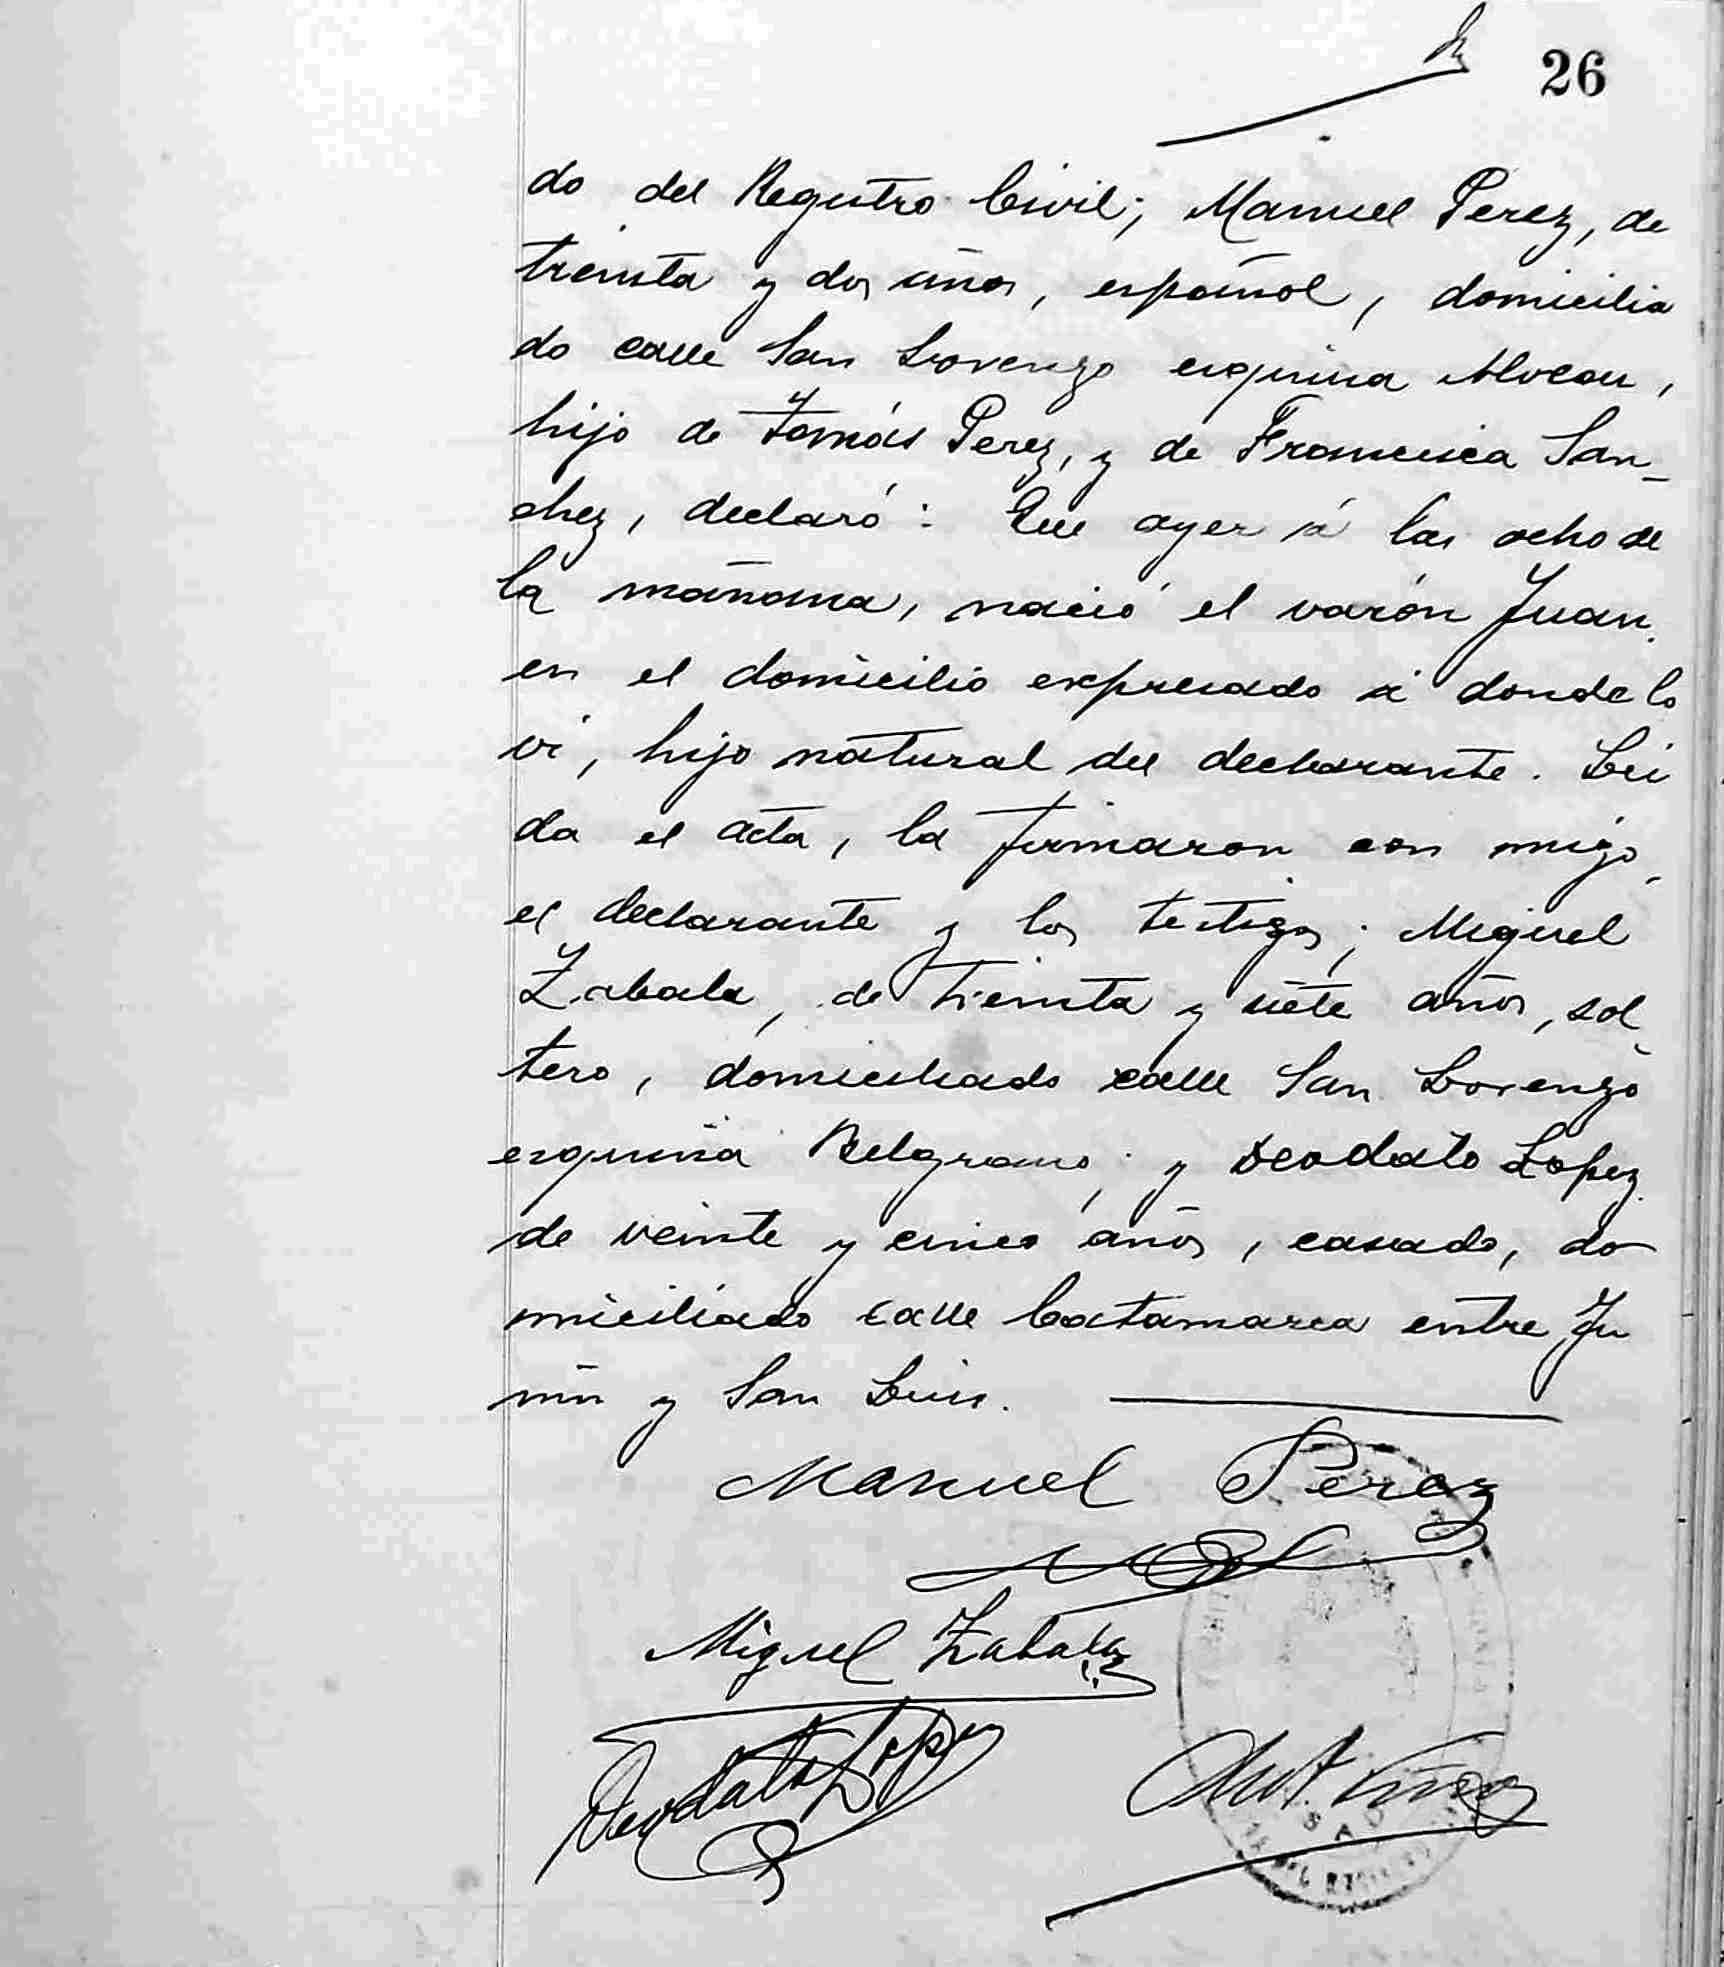 26
do del Registro Civil; Manuel Perez, de
treinta y dos años, español, domicilia
do calle San Lorenzo esquina Alvear,
hijo de Tomás Perez, y de Francisca San-
chez, declaró: Que ayer á las ocho de
la mañana, nació el varón Juan.
en el domicilio expresado á donde lo
ví, hijo natural del declarante. Lei
da el acta, la firmaron con migo,
el declarante y los testigos; Miguel
Zabala, de treinta y siete años, sol
tero, domiciliado calle San Lorenzo
esquina Belgrano; y Deodato Lopez
de veinte y cinco años, casado, do
miciliado calle Catamarca entre Ju
nín y San Luis.
Manuel Perez
Miguel Zabala
Deodato Lopez